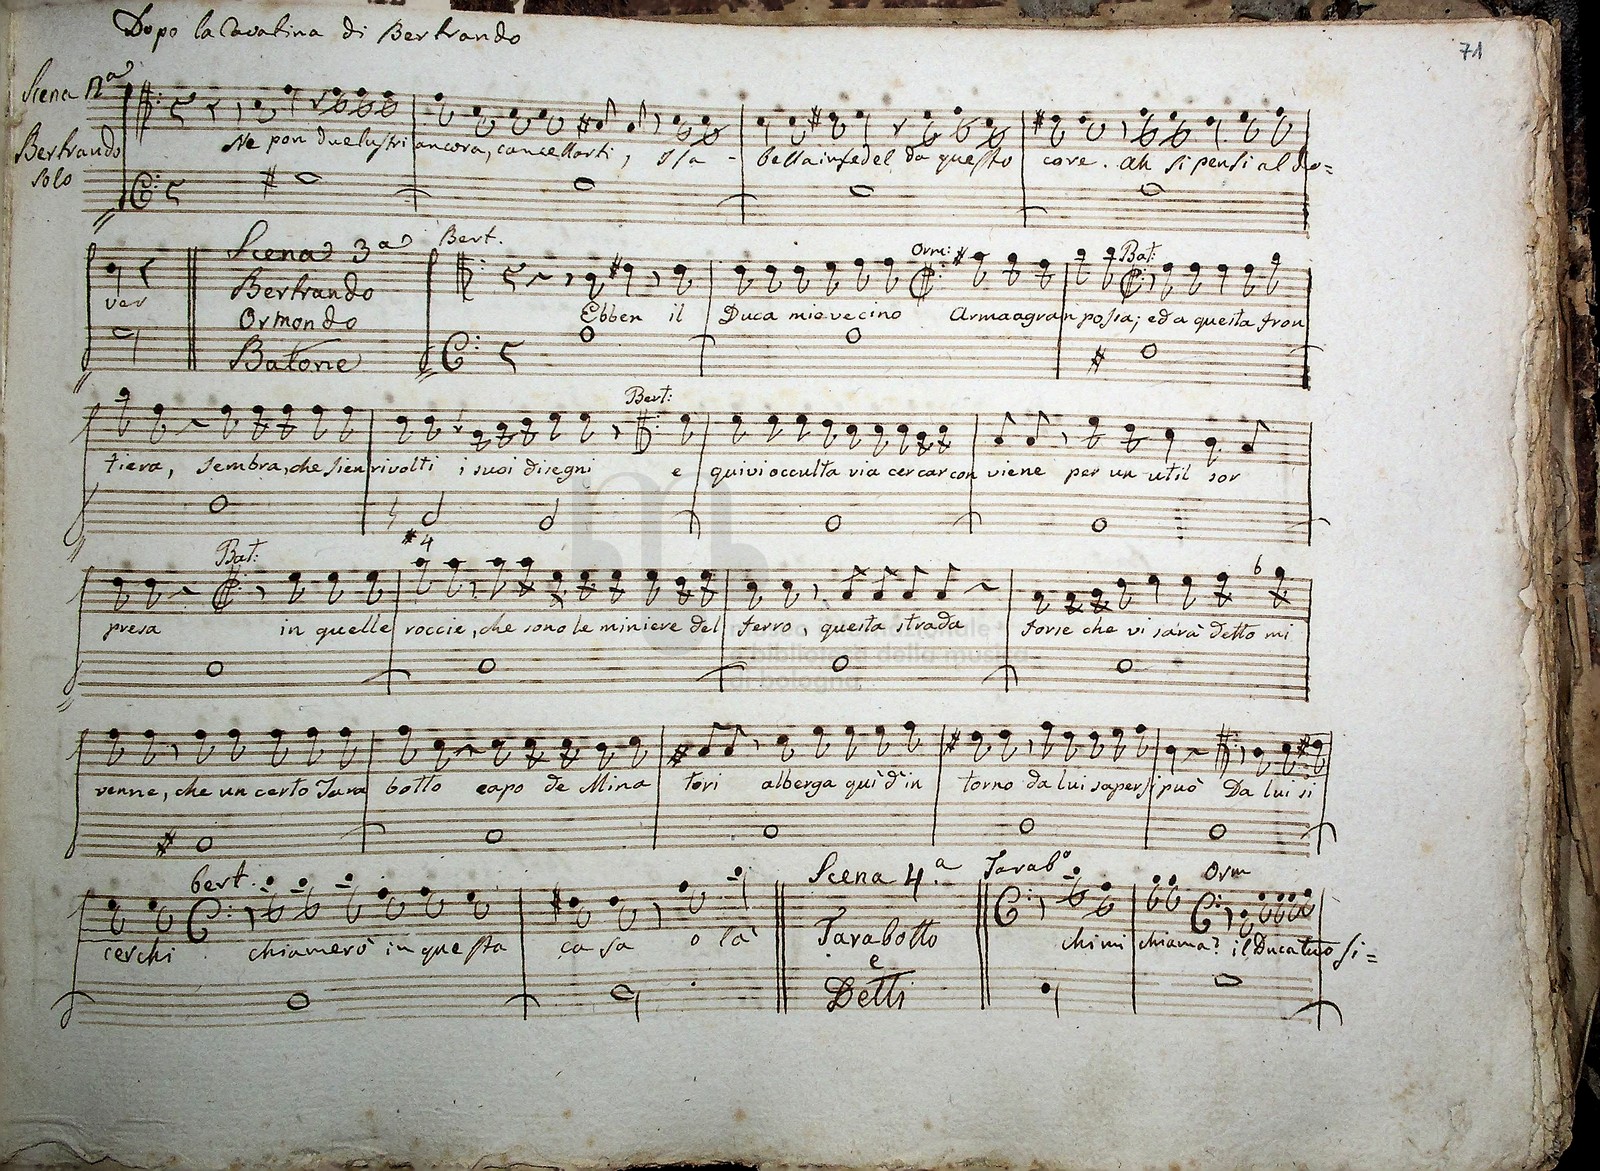 Dopo la Cavatina di Bertrando
71
Scena 2ª
Bertrando
solo
Ne pon due lustri ancora, cancellarti, Isa - bella infedel da questo core. Ah si pensi al do=
ver
Scena 3ª
Bertrando
Ormondo
Batone
Bert.
Orm:
Bat:
Ebben il Duca mio vecino Arma a gran possa; ed a questa fron
Bert:
tiera, sembra, che sien rivolti i suoi disegni e quivi occulta via cercar con viene per un util sor
Bat:
#4
presa in quelle roccie, che sono le miniere del ferro, questa strada forse che vi sarà detto mi
venne, che un certo Tara botto capo de Mina tori alberga quì d'in torno da lui saper si può Da lui si
bert.
Scena 4.ª
Tarabº
Orm
cerchi . chiamerò in questa casa o là
Tarabotto
e
Detti
chi mi chiama? il Duca tuo Si=
museo internazionale
e biblioteca della musica
di bologna